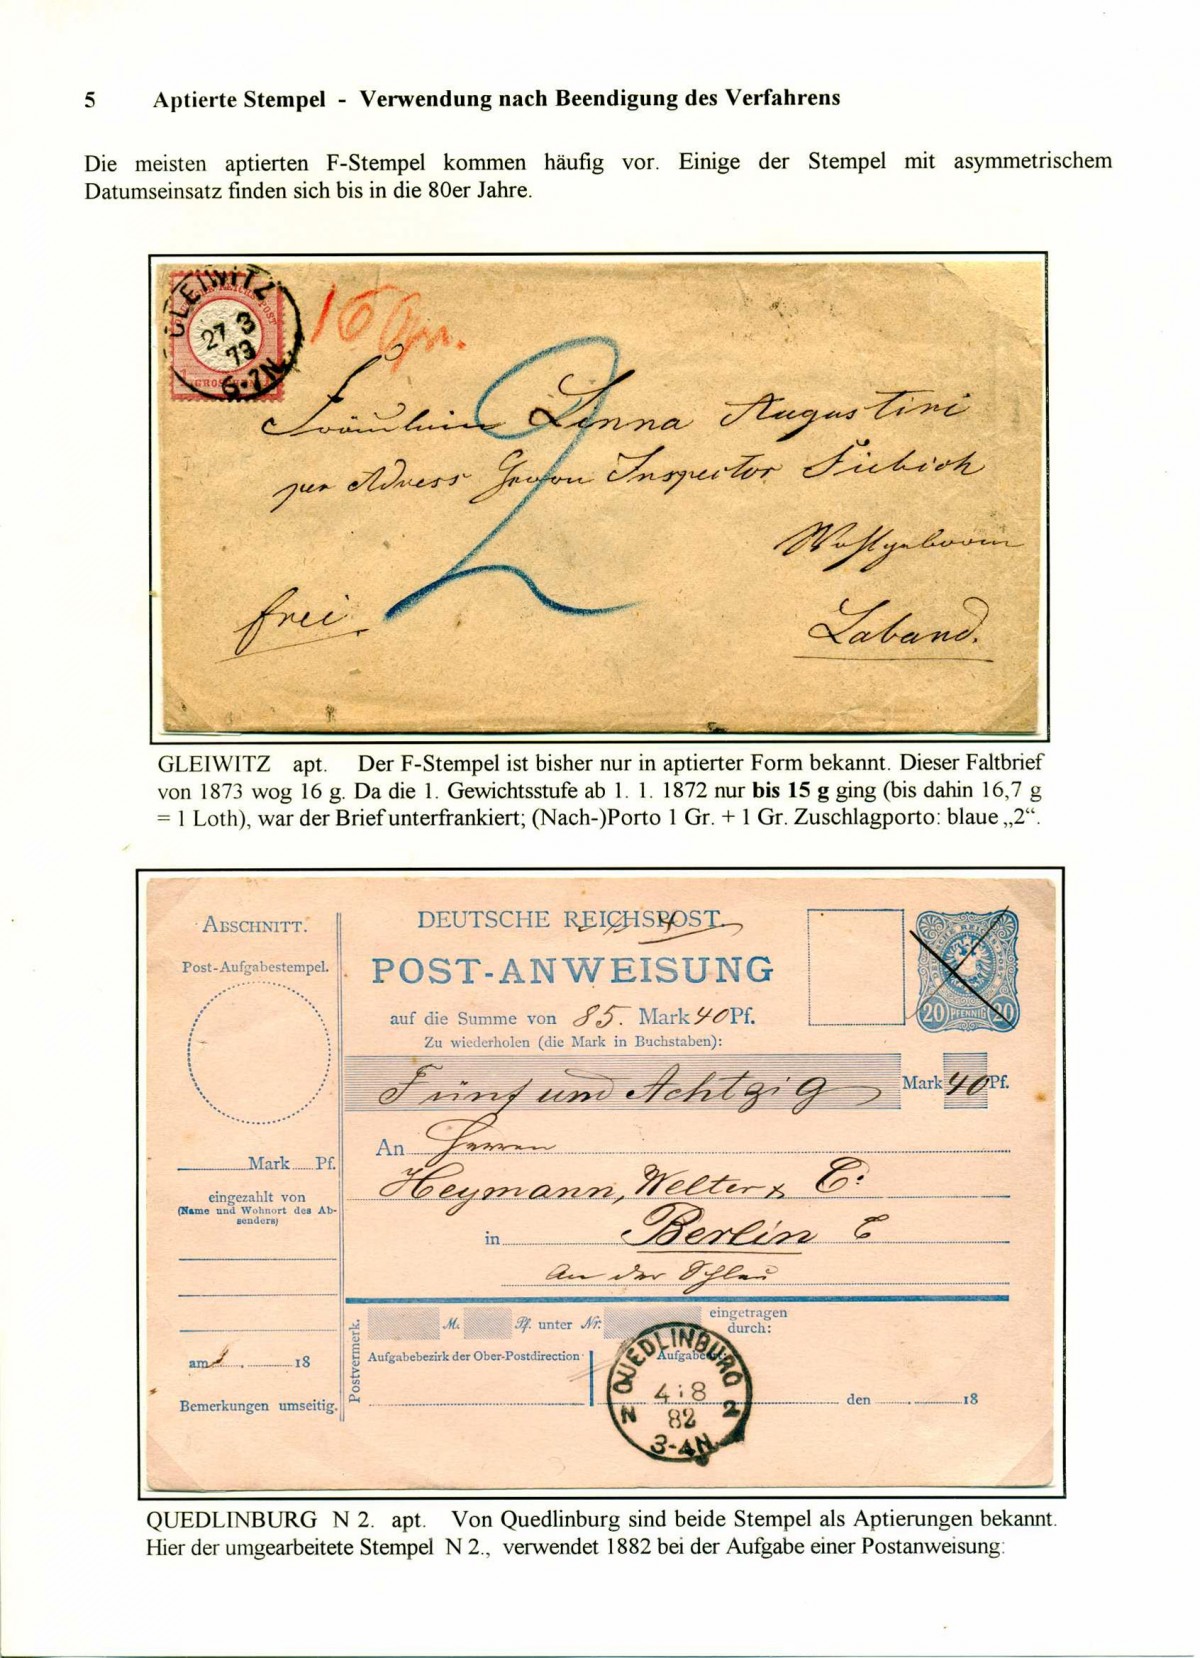 5 Aptierte Stempel - Verwendung nach Beendigung des Verfahrens
Die meisten aptierten F-Stempel kommen häufig vor. Einige der Stempel mit asymmetrischem
Datumseinsatz finden sich bis in die 80er Jahre.
GLEIWITZ
27 3
73
6-7N
1 GROSCHEN
16 Gr.
2
Fräulein Linna Augustini
per Adress Inspector Fiebich
frei
Laband.
GLEIWITZ apt. Der F-Stempel ist bisher nur in aptierter Form bekannt. Dieser Faltbrief
von 1873 wog 16 g. Da die 1. Gewichtsstufe ab 1. 1. 1872 nur bis 15 g ging (bis dahin 16,7 g
= 1 Loth), war der Brief unterfrankiert; (Nach-)Porto 1 Gr. + 1 Gr. Zuschlagporto: blaue „2“.
ABSCHNITT.
Post-Aufgabestempel.
Mark Pf.
eingezahlt von
(Name und Wohnort des Ab-
senders)
am 18
Bemerkungen umseitig.
DEUTSCHE REICHSPOST.
POST-ANWEISUNG
auf die Summe von 85. Mark 40 Pf.
Zu wiederholen (die Mark in Buchstaben):
Fünf und Achtzig Mark 40 Pf.
An Herren
Heymann, Welter & C:
in Berlin C
An der
DEUTSCHE REICHS-POST
20 PFENNIG 20
Postvermerk.
M. Pf. unter Nr. eingetragen
durch:
Aufgabebezirk der Ober-Postdirection
den 18
QUEDLINBURG
4 8
82
3-4N
N 2
QUEDLINBURG N 2. apt. Von Quedlinburg sind beide Stempel als Aptierungen bekannt.
Hier der umgearbeitete Stempel N 2., verwendet 1882 bei der Aufgabe einer Postanweisung.